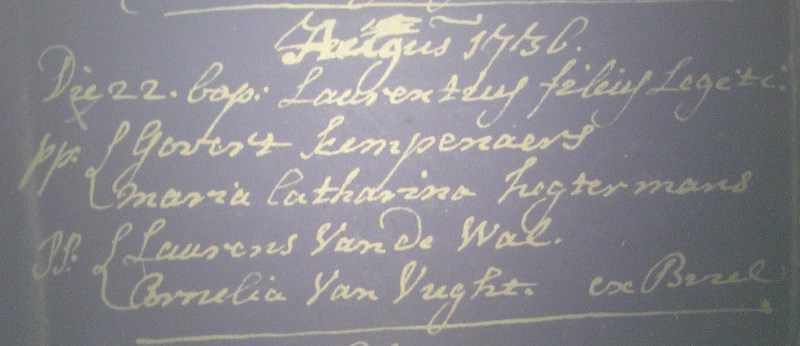 Augus 1736.
Die 22. bap: Laurentius filius Legiti:
pp. { Govert Kempenaers
Maria Catharina hogtermans
ss. { Laurens Van de Wal.
Cornelia Van Vught. ex